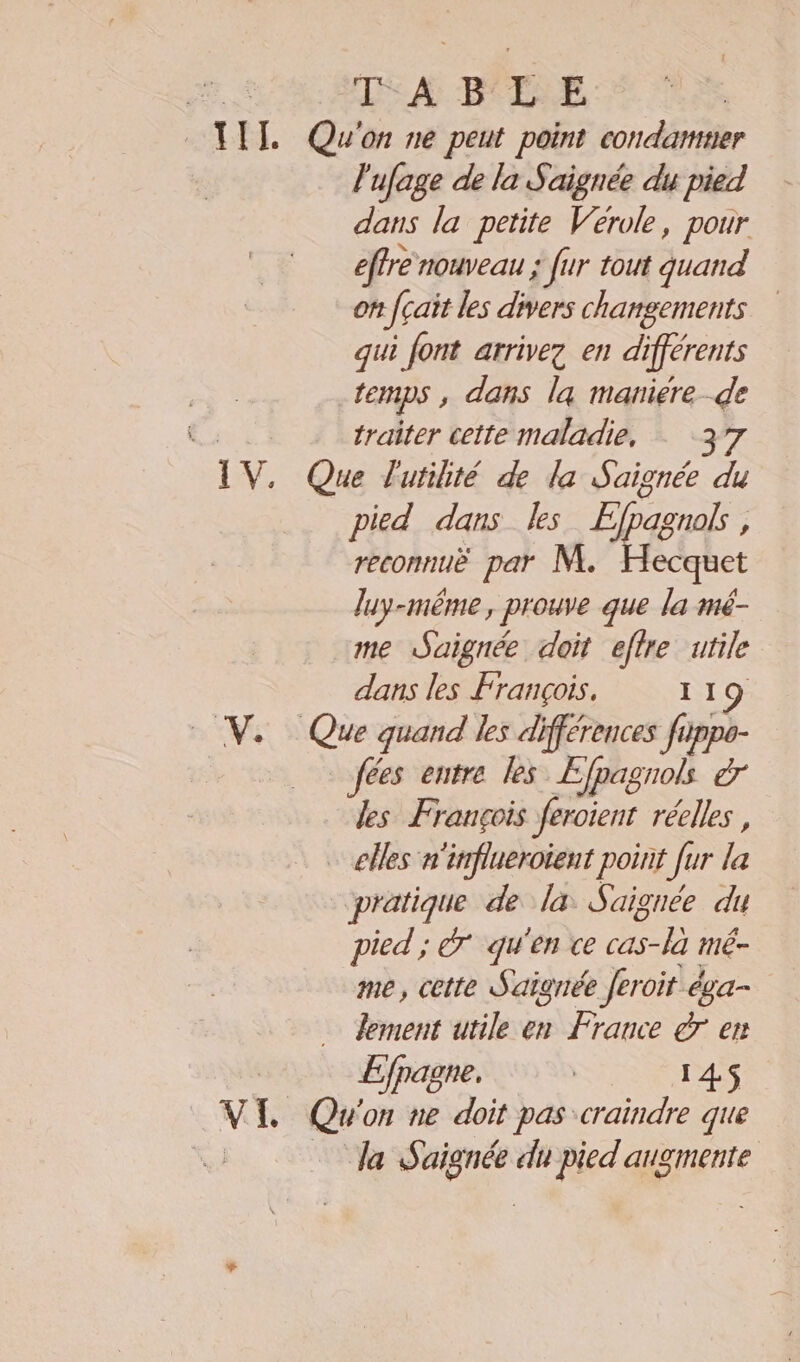 TABLE
III. Qu'on ne peut point condamner
l'uſage de la Saignée du pied
dans la petite Vérole, pour
eſtre nouveau ; ſur tout quand
on ſçait les divers changements
qui ſont arrivez en différents
temps , dans la maniére de
traiter cette maladie, 37
IV. Que l'utilité de la Saignée du
pied dans les Eſpagnols ,
reconnuë par M. Hecquet
luy-même, prouve que la mê-
me Saignée doit eſtre utile
dans les François, 119
V. Que quand les différences ſuppo-
ſées entre les Eſpagnols &
les François ſeroient réelles ,
elles n'influeroient point ſur la
pratique de la Saignée du
pied ; & qu'en ce cas-là mê-
me, cette Saignée ſeroit éga-
lement utile en France & en
Eſpagne, 145
VI. Qu'on ne doit pas craindre que
la Saignée du pied augmente